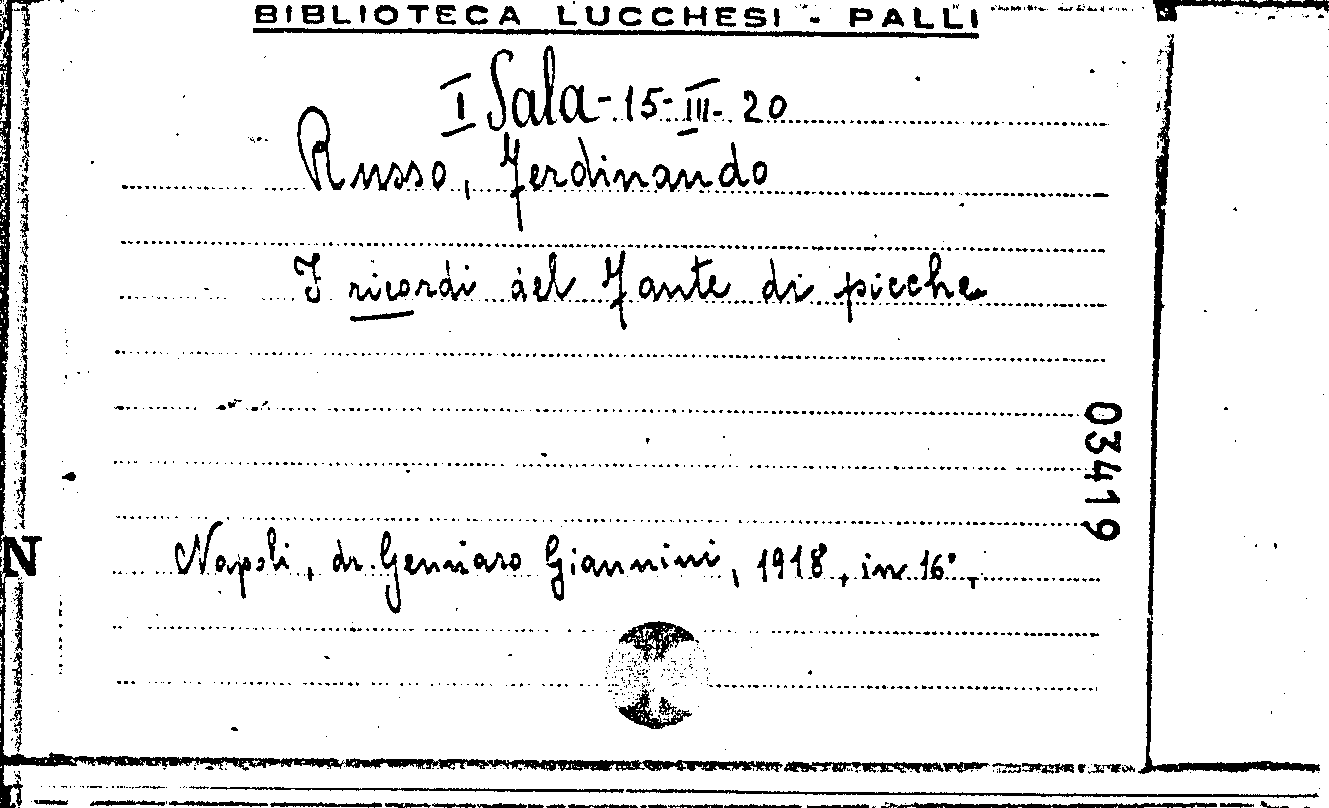 BIBLIOTECA LUCCHESI - PALLI
I Sala - 15 - III - 20
Russo, Ferdinando
I ricordi del Fante di picche
03419
N
Napoli, dr. Gennaro Giannini, 1918, in 16°,